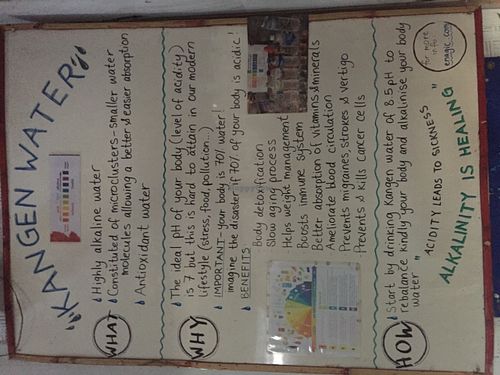 "KANGEN WATER"
WHAT
Highly alkaline water
Constituted of microclusters - smaller water
molecules allowing a better & easier absorption
Antioxidant water
WHY
The ideal pH of your body (level of acidity)
is 7 but this is hard to attain in our modern
lifestyle (stress, food, pollution...)
IMPORTANT - your body is 70% water
imagine the disaster if 70% of your body is acidic!
BENEFITS
Body detoxification
Slow aging process
Helps weight management
Boosts immune system
Better absorption of vitamins & minerals
Ameliorate blood circulation
Prevents migraines, strokes & vertigo
Prevents & kills cancer cells
HOW
Start by drinking Kangen water of 8.5 pH to
rebalance kindly your body and alkalinise your body
water
" ACIDITY LEADS TO SICKNESS
ALKALINITY IS HEALING "
for more
info:
enagic.com